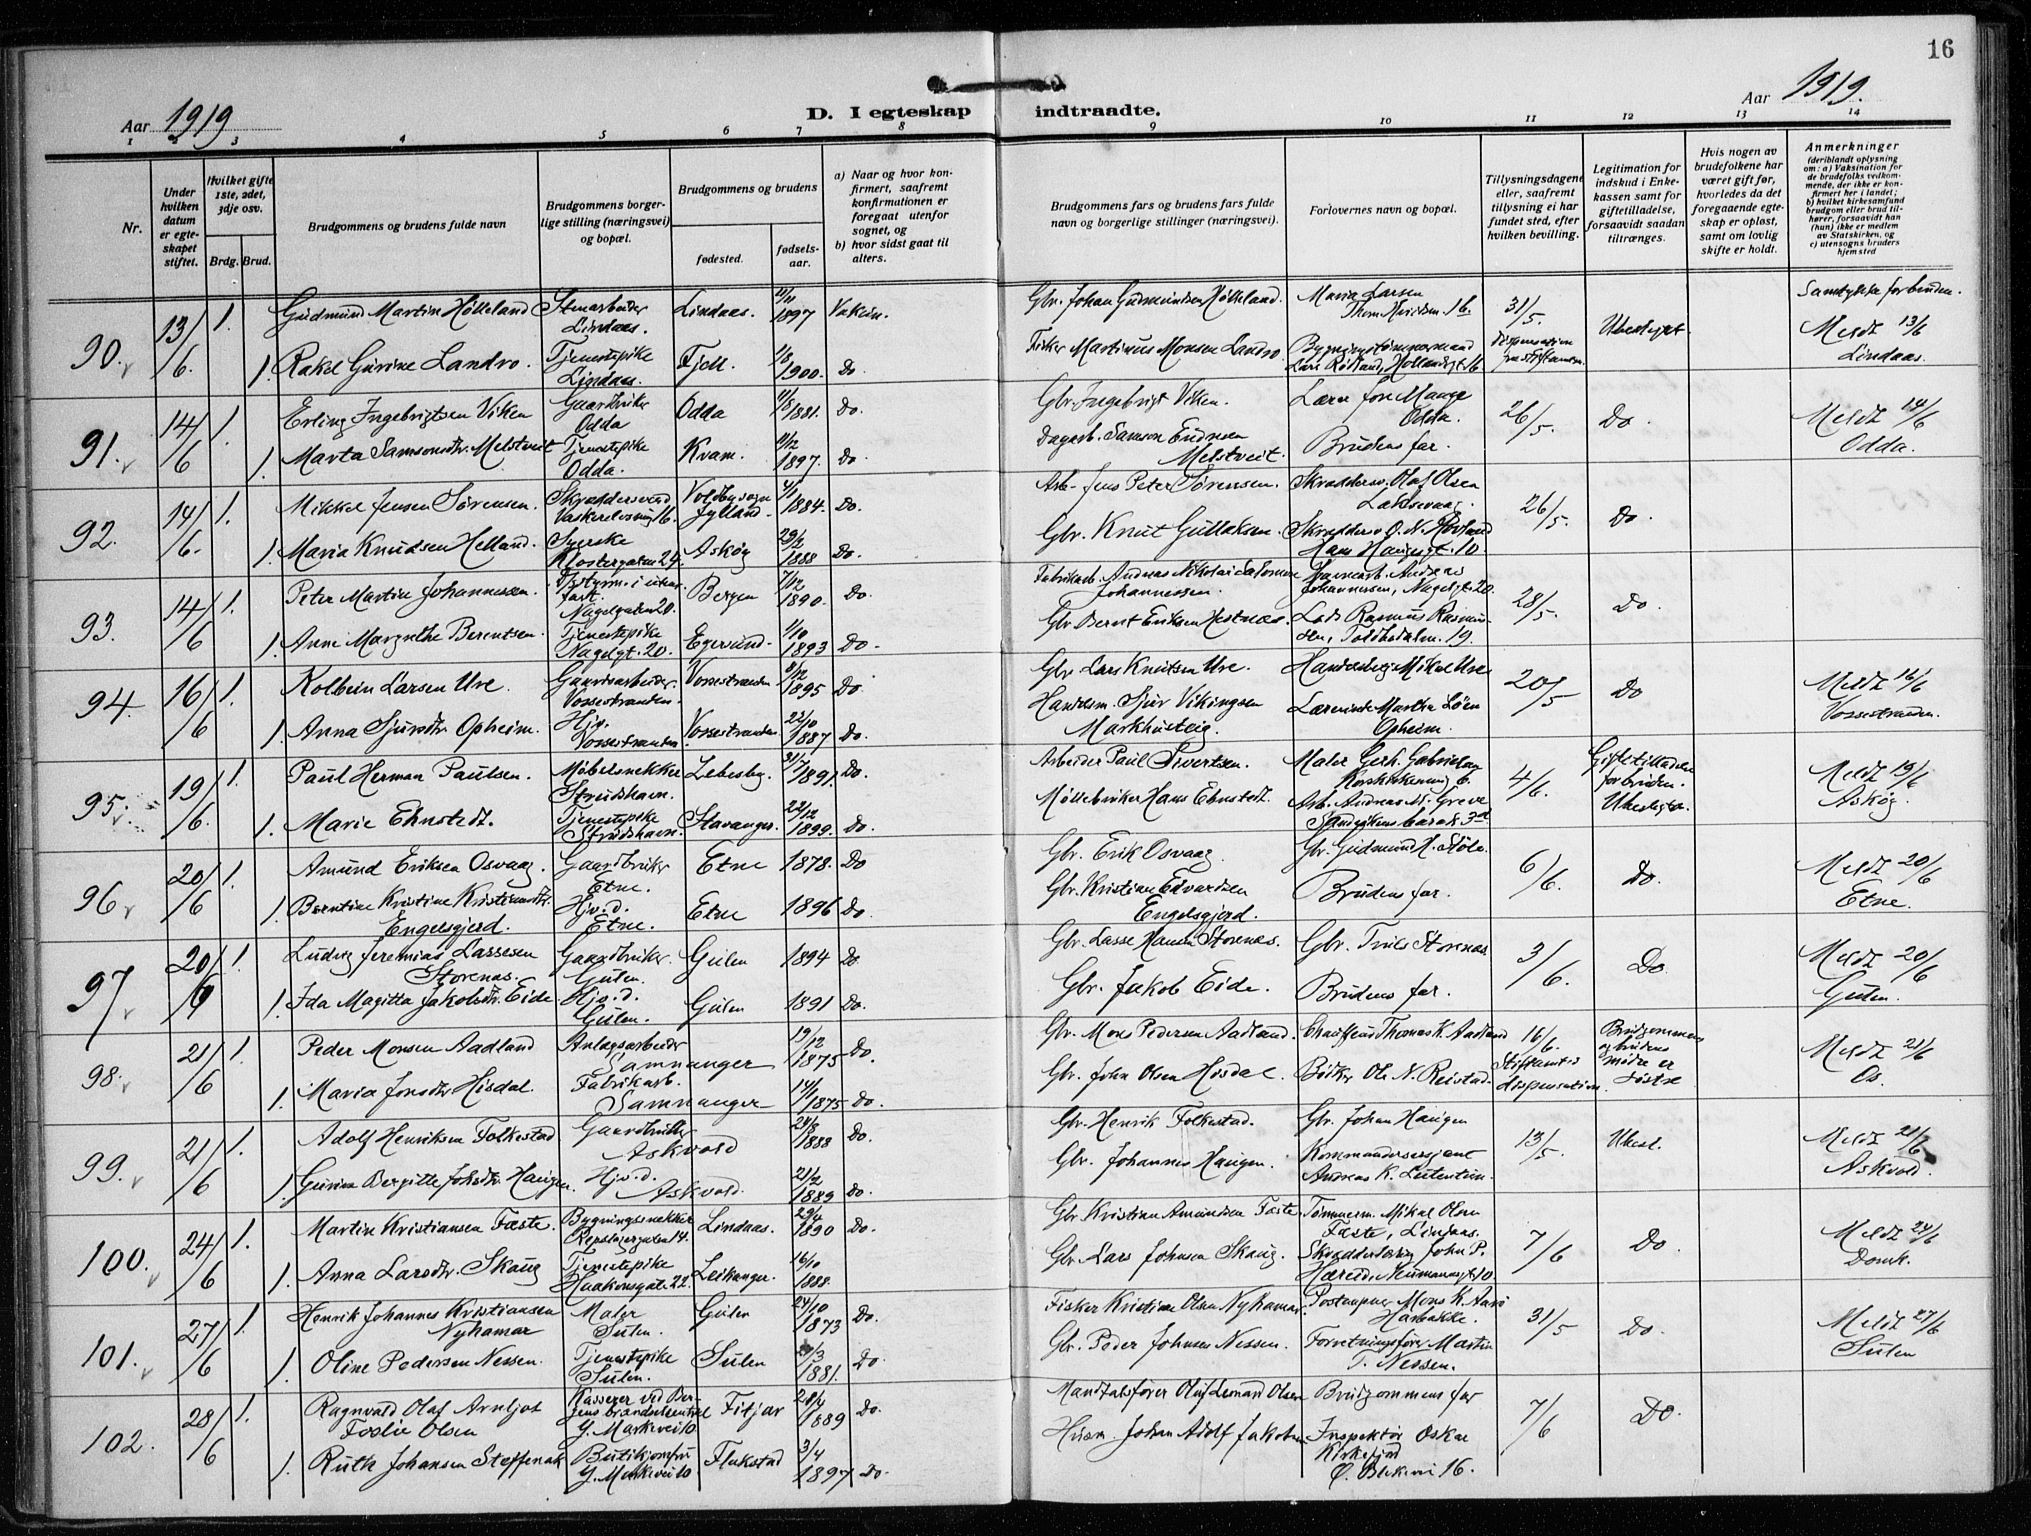 16
Aar 1919
D. I egteskap indtraadte.
Aar 1919.
1 2 3 4 5 6 7 8 9 10 11 12 13 14
Nr.
Under hvilken datum er egteskapet stiftet.
Hvilket gifte 1ste, 2det, 3dje osv.
Brdg. Brud.
Brudgommens og brudens fulde navn
Brudgommens borgerlige stilling (næringsvei) og bopæl.
Brudgommens og brudens
fødested.
fødselsaar.
a) Naar og hvor konfirmert, saafremt konfirmationen er foregaat utenfor sognet, og
b) hvor sidst gaat til alters.
Brudgommens fars og brudens fars fulde navn og borgerlige stillinger (næringsvei).
Forlovernes navn og bopæl.
Tillysningsdagene eller, saafremt tillysning ei har fundet sted, efter hvilken bevilling.
Legitimation for indskud i Enkekassen samt for giftetilladelse, forsaavidt saadan tiltrænges.
Hvis nogen av brudefolkene har været gift før, hvorledes da det foregaaende egteskap er opløst, samt om lovlig skifte er holdt.
Anmerkninger
(deriblandt oplysning om: a) Vaksination for de brudefolks vedkommende, der ikke er konfirmert her i landet; b) hvilket kirkesamfund brudgom eller brud tilhører, forsaavidt han (hun) ikke er medlem av Statskirken, og c) utensogns bruders hjemsted
90. 13/6. 1. Gudmund Martin Hølleland Stenarbeider Lindaas. Lindaas. 11/11 1897 Vaksin. Gbr. Johan Gudmundsen Hølleland. Maria Larsen 16 31/5. Ubeslegt. Samtykke for bruden.
1. Rakel Gurine Landro. Tjenestepike Lindaas. Fjell 1/8 1900. Do Fisker Martinus Monsen Landro Bygningstømmermand Lars Rødland, Hollendergt 16 Dispensation fra stiftamtm. Meldt 13/6 Lindaas.
91. 14/6 1. Erling Ingebrigtsen Viken Gaardbruker Odda Odda 11/8 1881. Do. Gbr. Ingebrigt Viken. Lærer Odda. 26/5. Do. Meldt 14/6 Odda.
1. Marta Samsonsdtr. Melstveit Tjenestepike Odda. Kvam. 11/12 1897. Do Dagarb. Samson Endresen Melstveit. Brudens far.
92. 14/6. 1. Mikkel Jensen Sørensen. Skræddersvend 16. Jylland 4/1 1884. Do. Arb. Jens Peter Sørensen. Skræddersv. Olaf Olsen Laksevaag. 26/5. Do.
1. Maria Knudsen Helland. Syerske Klostergaten 24. Askøy 29/2 1888 Do. Gbr. Knut Gullaksen Skrædder O. N. Hovland Hans Haugesgt. 10.
93. 14/6 1. Peter Martin Johannessen. Nagelgaten 20. Bergen 7/12 1890. Do Fabrikarb. Andreas Nikolai Salomon Johannessen. Andreas Johannessen, Nagelgt. 20. 28/5. Do.
1. Anne Margrethe Berentsen. Tjenestepike Nagelgt. 20. Egersund. 1/10 1893 Do. Gbr. Bernt Eriksen Hestnæs. Lods Rasmus Rasmussen, 19.
94. 16/6 1. Kolbein Larsen Ure. Gaardsarbeider. Vossestranden. Vossestranden 8/12 1895 Do. Gbr. Lars Knutsen Ure. Mikal Ure 20/5 Do Meldt 16/6 Vossestranden.
1. Anna Sjursdtr. Opheim. Hjv. Vossestranden Vossestranden 23/10 1887 Do. Handelsm. Sjur Vikingsen Markhusteig. Lærerinde Martha Løen Opheim.
95. 19/6. 1. Paul Herman Paulsen. Møbelsnekker Strudshavn. Lebesby. 31/7 1891. Do. Arbeider Paul Sivertsen. Maler Gerh. Gabrielsen 6. 4/6. Giftetilladelse for bruden. Ubeslegtet. Meldt 19/6 Askøy.
1. Marie Ehnstedt. Tjenestepike Strudshavn. Stavanger. 22/12 1899. Do. Møllebruker Hans Ehnstedt. Arb. Andreas M. Greve Sandvikens barak 3d
96. 20/6 1. Amund Eriksen Osvaag. Gaardbruker Etne. Etne 1878. Do Gbr. Erik Osvaag. Gbr. Gudmund H. Støle. 6/6. Do. Meldt 20/6 Etne.
1. Berntine Kristine Kristiansdtr. Engelsgjerd. Hjv. d. Etne. Etne 1896 Do. Gbr. Kristian Edvardsen Engelsgjerd. Brudens far.
97. 20/6 1. Ludvig Jeremias Lassesen Storenas. Gaardbruker. Gulen. Gulen 1894 Do. Gbr. Lasse Hansen Storenæs. Gbr. Storenæs. 3/6. Do Meldt 20/6 Gulen.
1. Ida Magitta Jakobsdtr. Eide Hjv. d. Gulen. Gulen 1891 Do. Gbr. Jakob Eide. Brudens far.
98. 21/6 1. Peder Monsen Aadland Anlægsarbeider Samnanger 19/12 1875 Do. Gbr. Mons Pedersen Aadland. Chauffeur Thomas K. Aadland 16/6. Stiftamtets dispensation. Brudgommens og brudens mødre er søstre Meldt 21/6 Os.
1. Maria Jonsdtr. Hisdal. Fabrikarb. Samnanger 14/1 1875 Do. Gbr. John Olsen Hisdal. Bødker Ole N. Reistad.
99. 21/6 1. Adolf Henriksen Folkestad Gaardbruker Askvold 24/8 1888 Do. Gbr. Henrik Folkestad. Gbr. Johan Haugen 13/5. Ubesl. Meldt 21/6 Askvold.
1. Gurine Bergitte Johsdtr. Haugen. Hjv. d. Askvold. 21/2 1889 Do. Gbr. Johannes Haugen. Kommandersersjant Andreas K.
100. 24/6 1. Martin Kristiansen Fæste. Bygningssnekker Repslagergaten 14. Lindaas. 29/4 1890 Do. Gbr. Kristian Amundsen Fæste. Tømmerm. Mikal Olsen Fæste, Lindaas. 7/6 Do. Meldt 24/6 Domk.
1. Anna Larsdtr. Skaug Tjenestepike Haakonsgate 22. Leikanger. 16/10 1888. Gbr. Lars Johnsen Skaug. John P. Neumannsgt 10.
101. 27/6 1. Henrik Johannes Kristiansen Nyhamar Maler Sulen. Gulen 24/10 1873 Do. Fisker Kristian Olsen Nyhamar. Mons K. Aarø Harbakke. 31/5 Do. Meldt 27/6 Sulen
1. Oline Pedersen Nessen. Tjenestepike Sulen. Sulen 1881. Do. Gbr. Peder Johnsen Nessen. Forretningsfører Martin T. Nessen.
102. 28/6 1. Ragnvald Olaf Arnljot Foslie Olsen Kasserer ved Bergens G. Markevei 10 Fitjar 28/4 1889 Do. Mandtalsfører Oluf Leonard Olsen Brudgommens far 7/6 Do.
1. Ruth Johansen Steffenak G. Markevei 10 Flakstad 3/4 1897 Do. Husm. Johan Adolf Jakobsen Inspektør Oskar 16.